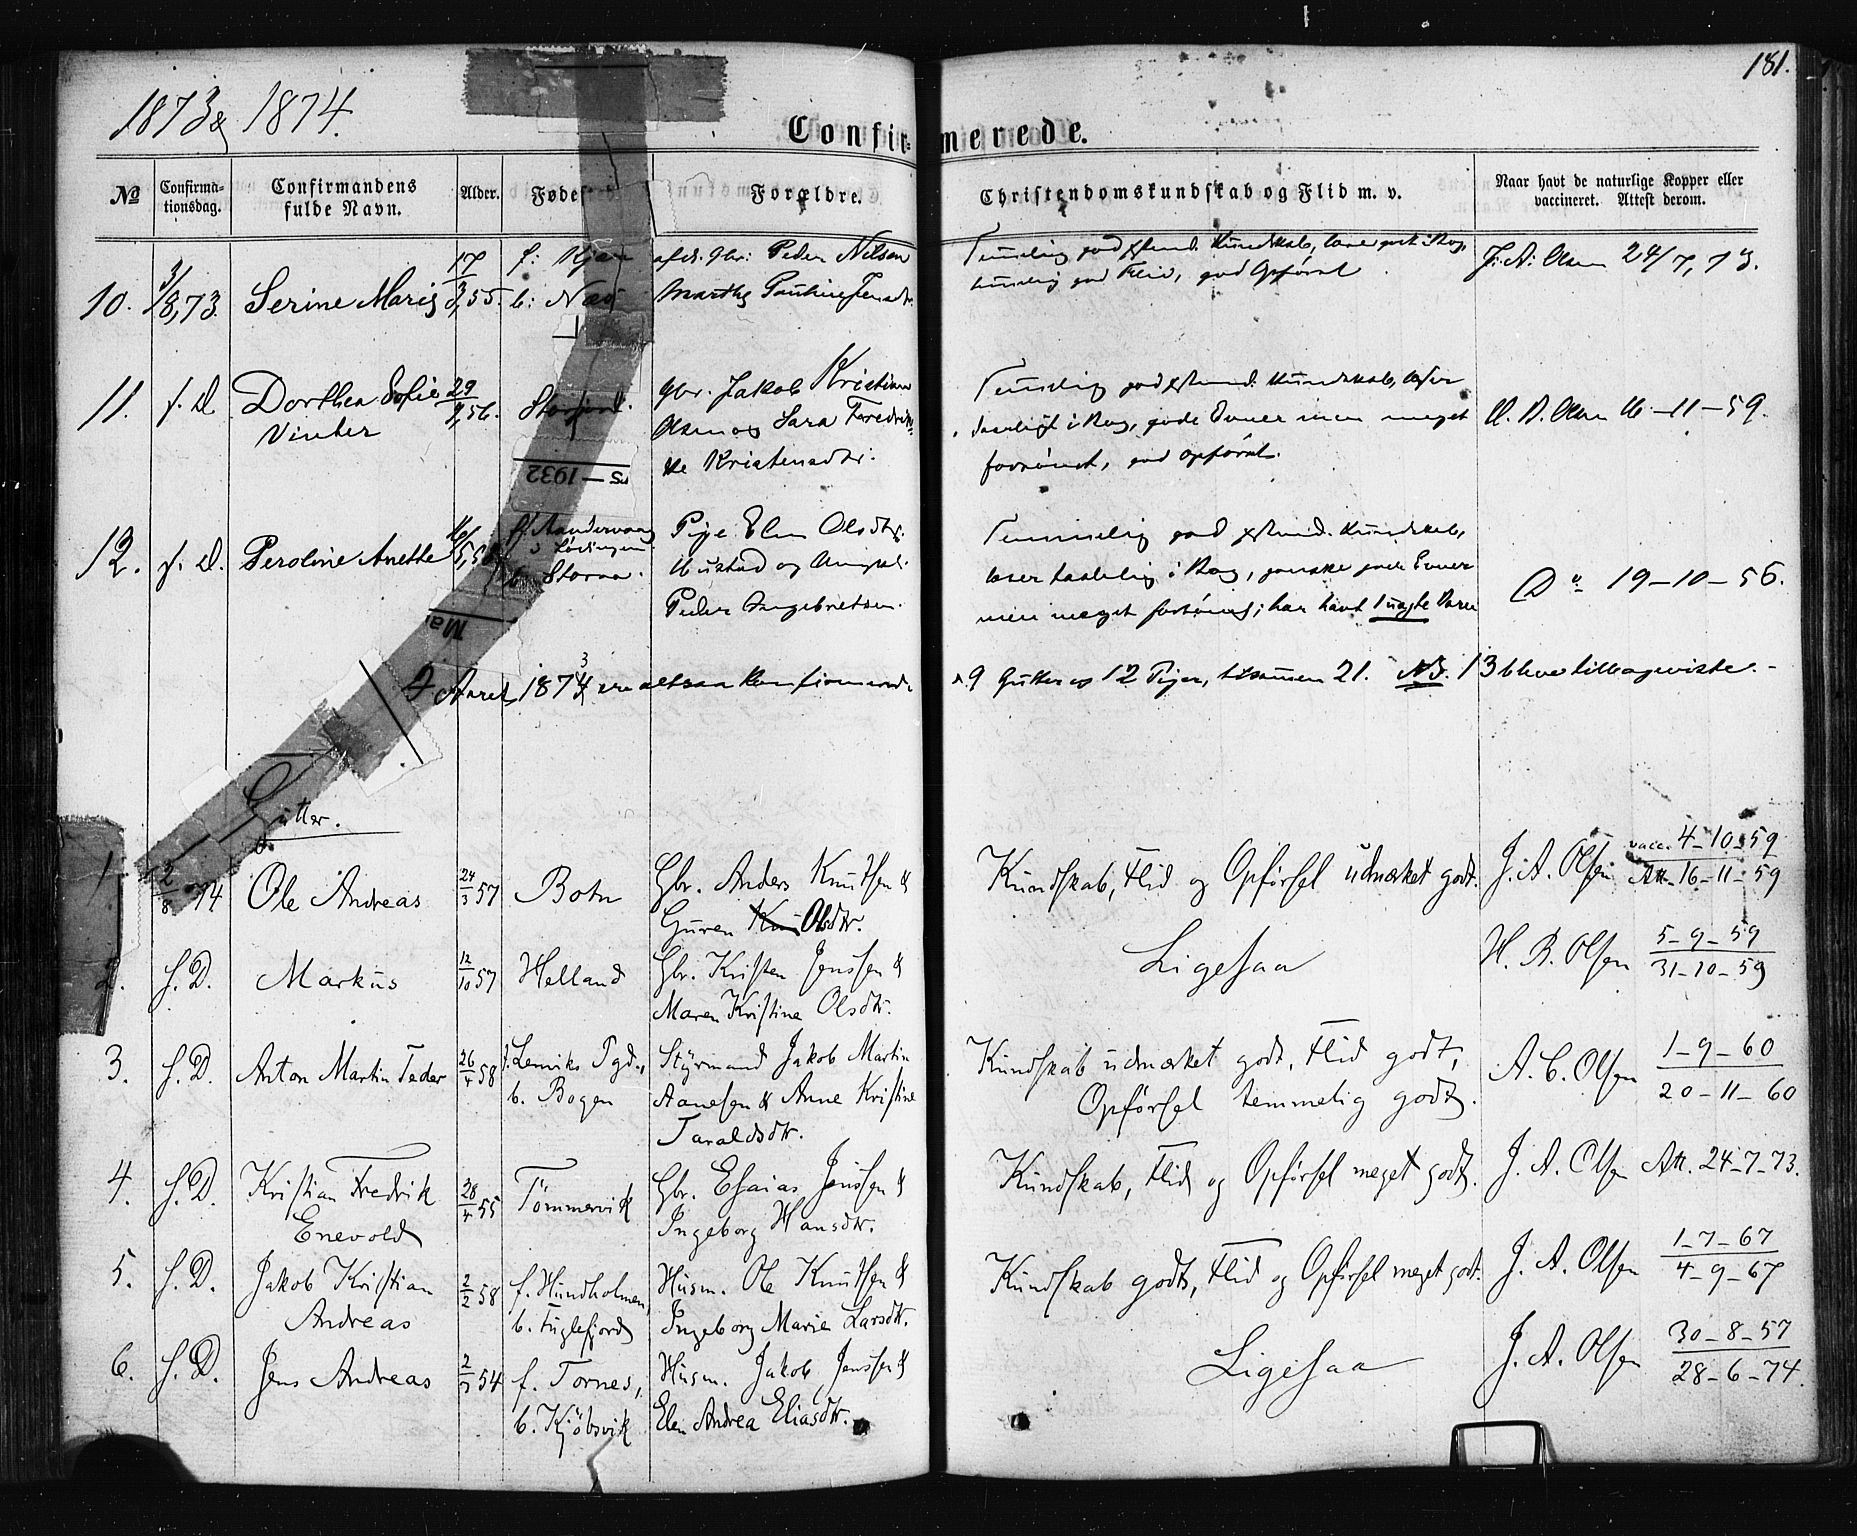 181.
1873 & 1874.
Confirmerede.
No Confirmationsdag. Confirmandens fulde Navn. Alder. Fødested Forældre. Christendomskundskab og Flid m. v. Naar havt de naturlige Kopper eller vaccineret. Attest derom.
10. 3/8,73. Serine Marie 17/3,55. f: b: Næs Gbr: Peder Nilsen
Martha Pauline Jensdtr.
god Flid, god Opførsel
J. A. Olsen 24/7, 73.
11. s. D. Dorthea Sofie
Vinter
29/9,56. Storjord. Gbr. Jakob Kristian
Olsen og Sara Fredrik-
ke Kristensdtr.
Temmelig god Kristend. Kundskab, læser
daarligt i Bog, gode Evner men meget
forsømt, god Opførsel.
Olsen 16-11-59.
12. s. D. Peroline Anette 16/5,56
i Lødingen
b. Storaa.
Pige Elen Olsdtr.
Hustad og Ungkl.
Peder Ingebretsen.
Temmelig god Kristend. Kundskab,
læser taalelig i Bog, ganske gode Evner
men meget forsømt; har havt 1 uægte Barn
Do 19-10-56.
I Aaret 1873 ere altsaa konfirmerede
9 Gutter og 12 Piger, tilsammen 21. NB. 13 bleve tilbageviste.
S — 1932
Ma
Gutter.
1. 2/8 74 Ole Andreas 24/3 57 Botn Gbr. Anders Knutsen &
Guren Olsdtr.
Kundskab, Flid og Opførsel udmærket godt. J. A. Olsen vacc. 4-10-59
Att. 16-11-59
2. s. D. Markus 12/10 57 Helland Gbr. Kristen Jenssen &
Maren Kristine Olsdtr.
Ligesaa H. B. Olsen 5-9-59
31-10-59
3. s. D. Anton Martin Peder 26/4 58 f. Lenviks Pgd.,
b. Bogen
Styrmand Jakob Martin
Aanesen & Anne Kristine
Taraldsdtr.
Kundskab udmærket godt, Flid godt,
Opførsel temmelig godt.
A. C. Olsen 1-9-60
20-11-60
4. s. D. Kristian Fredrik
Enevold
28/4 55 Tömmervik Gbr. Esaias Jenssen &
Ingeborg Hansdtr.
Kundskab, Flid og Opførsel meget godt. J. A. Olsen Att. 24-7-73.
5. s. D. Jakob Kristian
Andreas
2/2 58 f. Hundholmen,
b. Fuglefjord
Husm. Ole Knutsen &
Ingeborg Marie Larsdtr.
Kundskab godt, Flid og Opførsel meget godt. J. A. Olsen 1-7-67
4-9-67
6. s. D. Jens Andreas 54 f. Tornes,
b. Kjöbsvik
Husm. Jakob Jenssen &
Elen Andrea Eliasdtr.
Ligesaa J. A. Olsen 30-8-57
28-6-74.